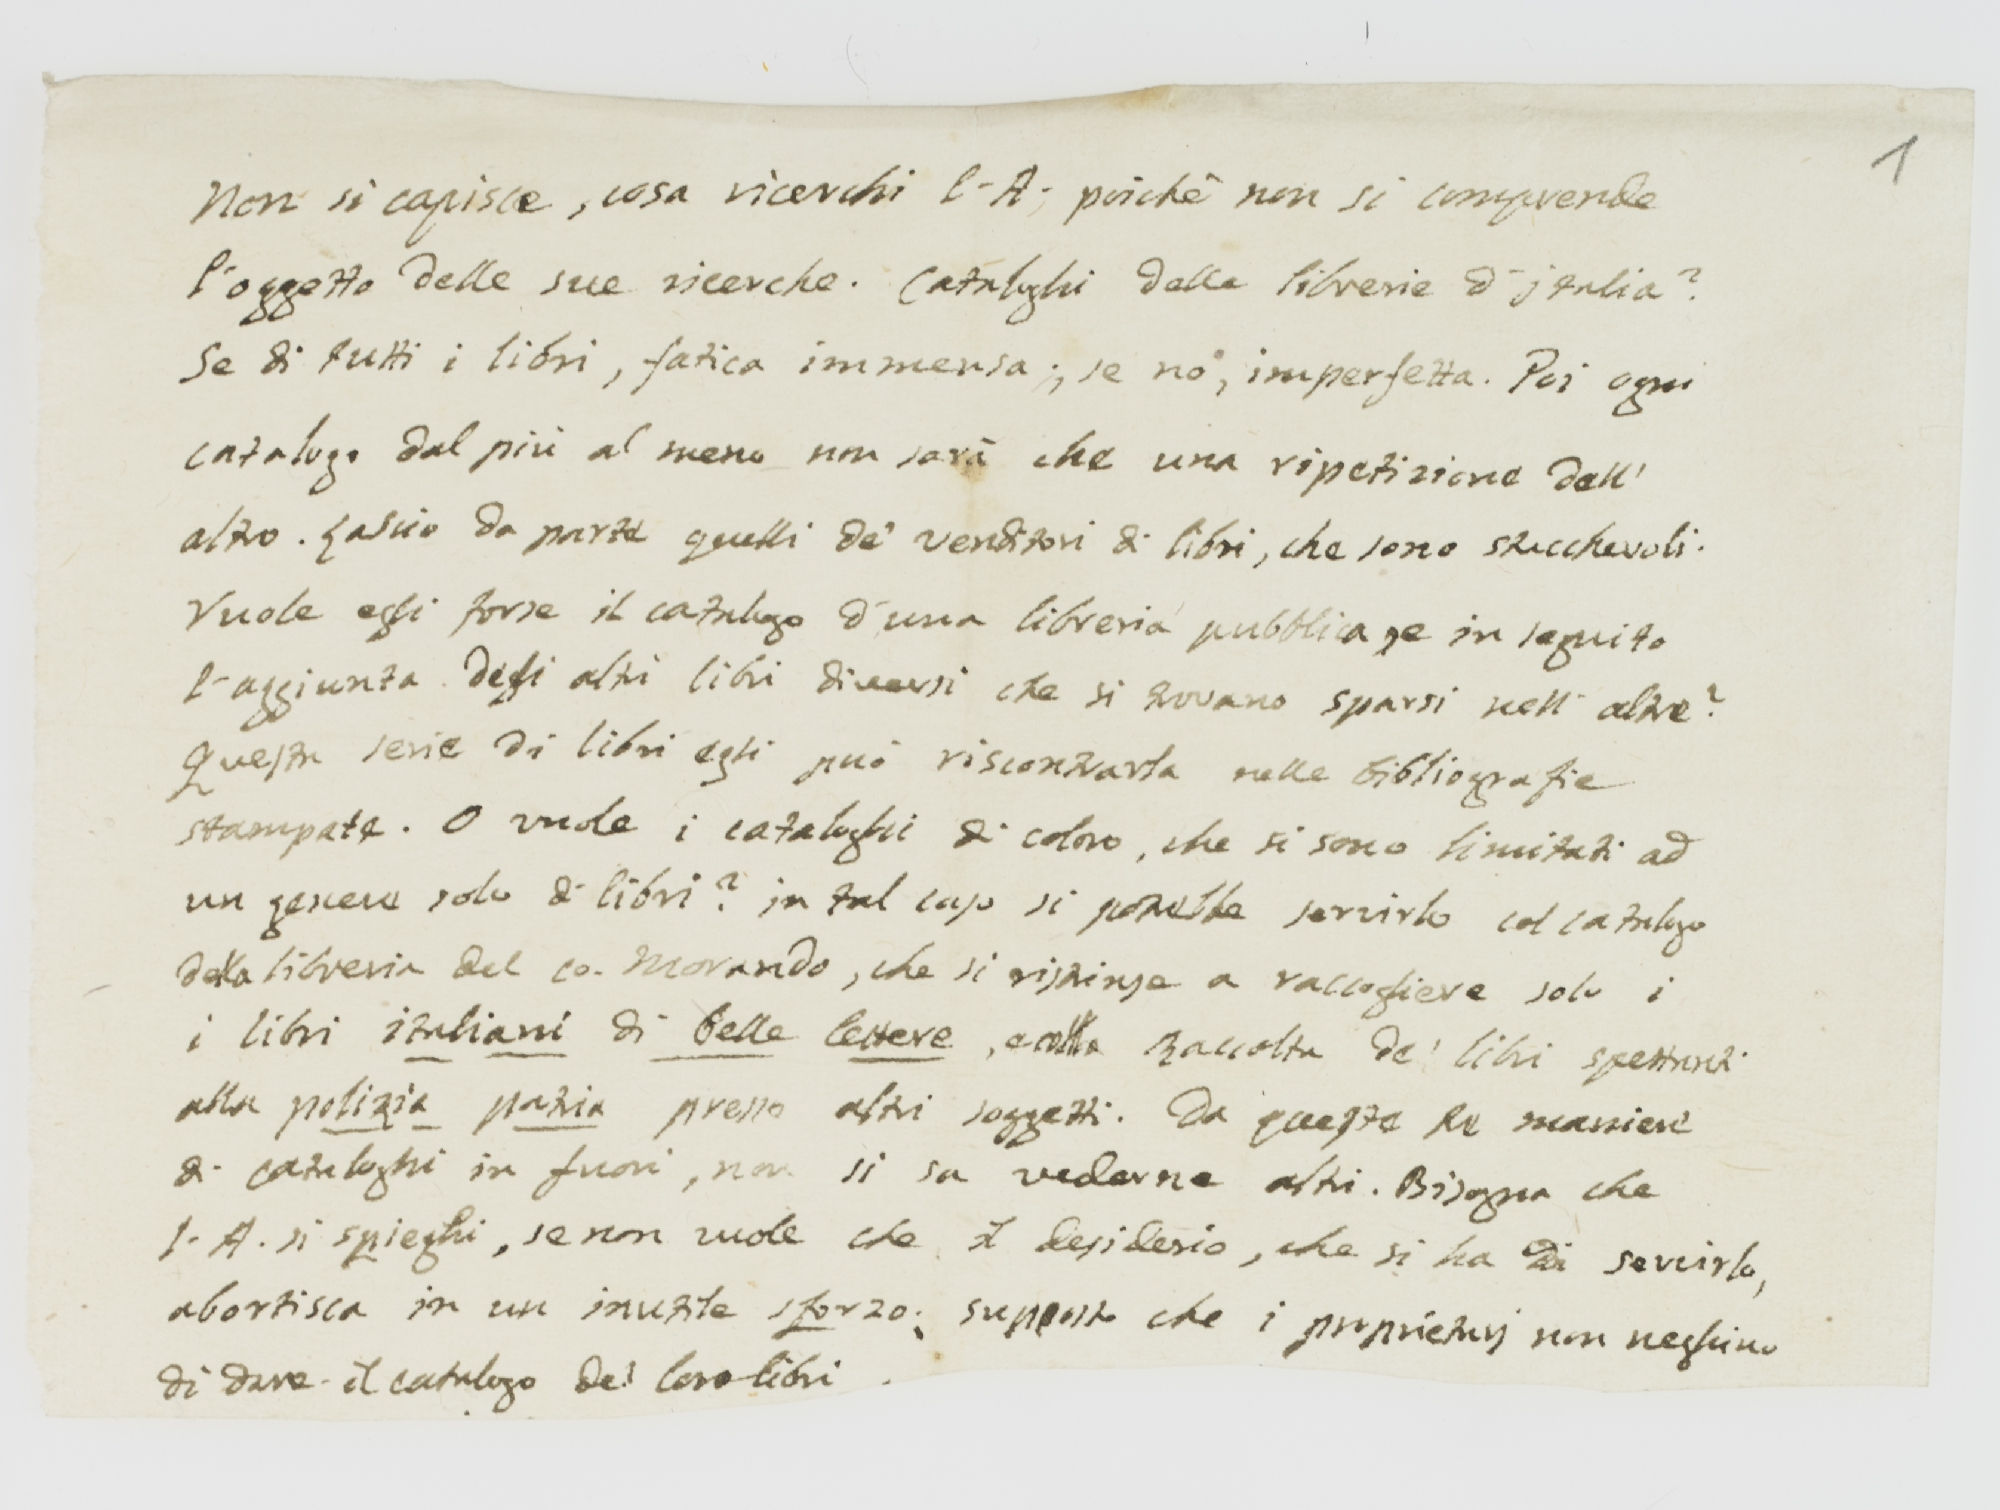 1
Non si capisce, cosa ricerchi l'A; poichè non si comprende
l'oggetto delle sue ricerche. Cataloghi delle librerie d'jtalia?
Se di tutti i libri, fatica immensa; se nò, imperfetta. Poi ogni
catalogo dal più al meno non sarà che una ripetizione dell'
altro. Lascio da parte quelli de' venditori di libri, che sono stucchevoli.
Vuole egli forse il catalogo d'una libreria pubblica, e in seguito
l'aggiunta degli altri libri diversi che si trovano sparsi nell' altre?
Questa serie di libri egli può riscontrarla nelle bibliografie
stampate. O vuole i cataloghi di coloro, che si sono limitati ad
un genere solo di libri? in tal caso si potrebbe servirlo col catalogo
della libreria del co. Morando, che si ristrinse a raccogliere solo i
i libri italiani di belle lettere, e colla Raccolta de' libri spettanti
alla polizia patria presso altri soggetti. Da queste tre maniere
di cataloghi in fuori, non si sa vederne altri. Bisogna che
l'A. si spieghi, se non vuole che il desiderio, che si ha di servirlo,
abortisca in un inutile sforzo; supposto che i proprietarj non neghino
di dare il catalogo de' loro libri.